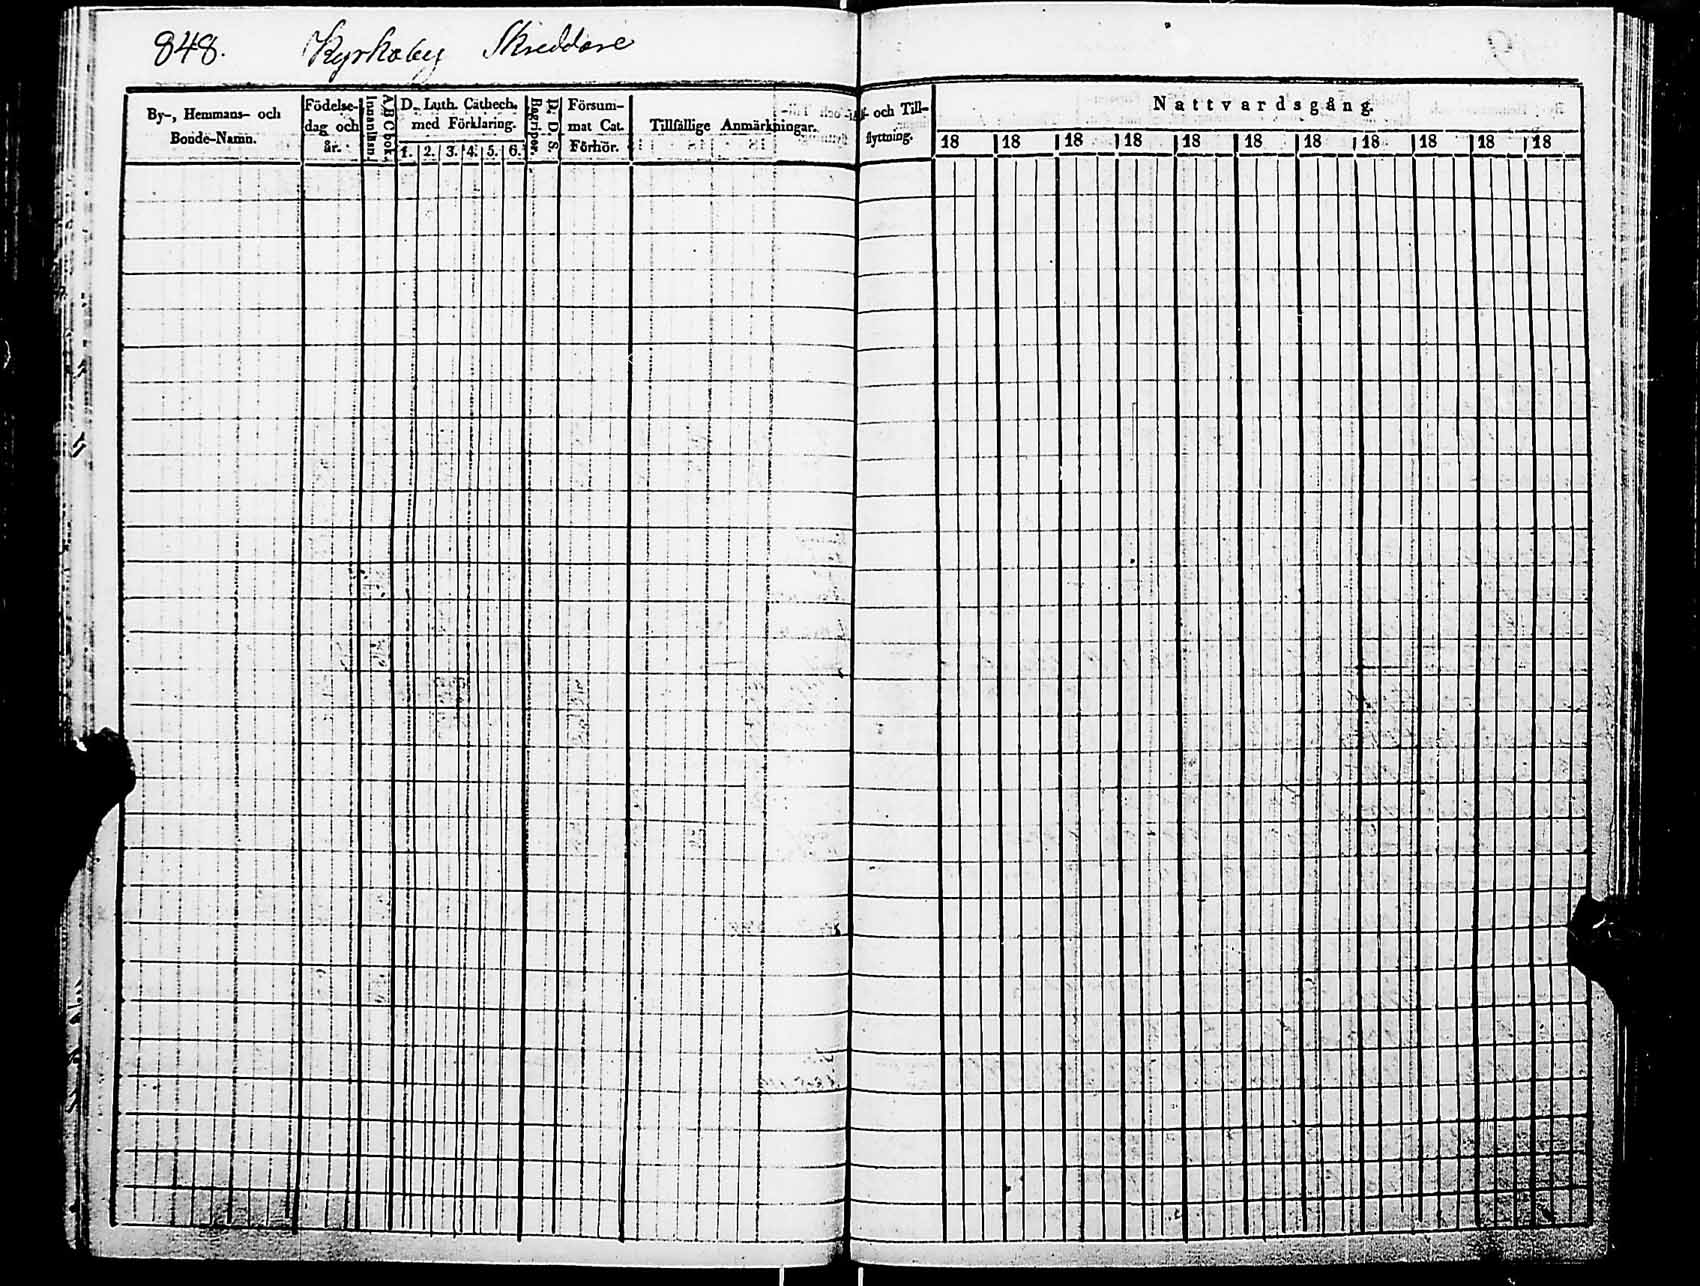 848. Kyrkoby Skreddare
By-, Hemmans- och Bonde-Namn.
Födelse-dag och år.
Innanläsn.
A B C bok.
D. Luth. Cathech. med Förklaring.
1. 2. 3. 4. 5. 6.
Begriper.
D. D. S.
Försum-mat Cat. Förhör.
Tillfällige Anmärkningar.
f- och Till-flyttning.
Nattvardsgång.
18 18 18 18 18 18 18 18 18 18 18